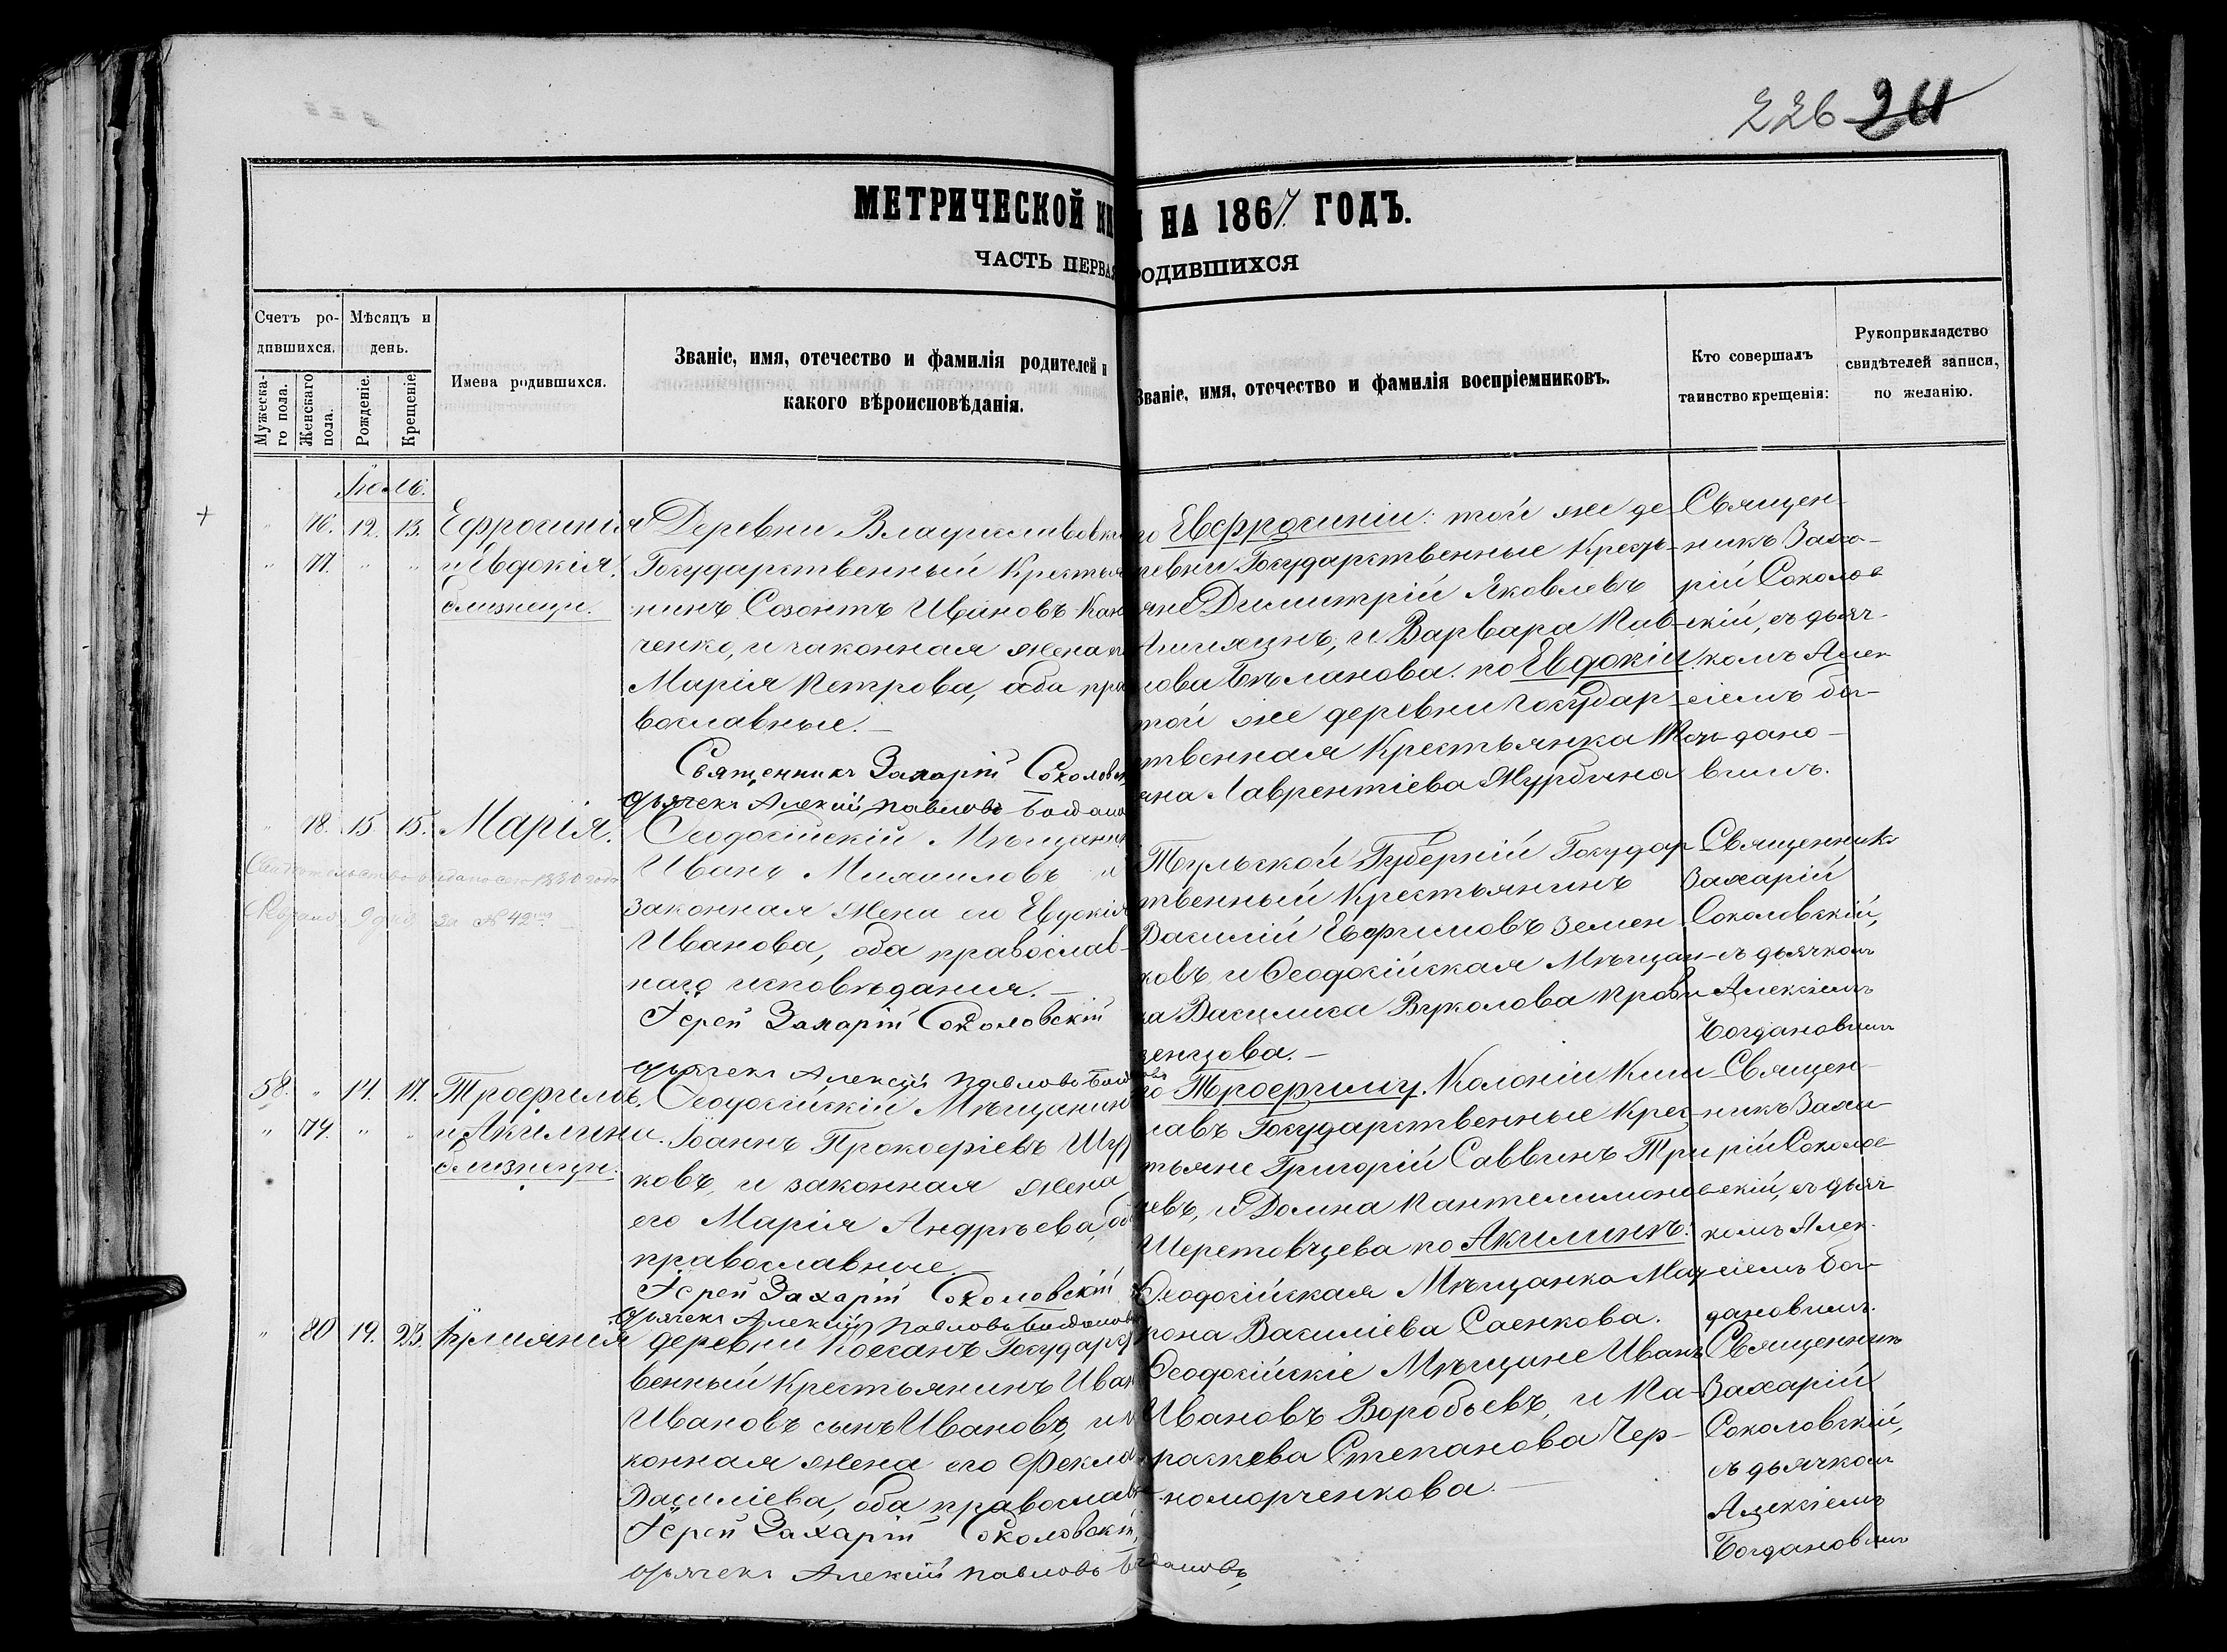 226 211
МЕТРИЧЕСКОЙ КН
И НА 1867. ГОДЪ.
ЧАСТЬ ПЕРВАЯ
РОДИВШИХСЯ
Счетъ ро-
дившихся.
Мѣсяцъ и
день.
Мужеска-
го пола.
Женскаго
пола.
Рожденіе.
Крещеніе.
Имена родившихся.
Званіе, имя, отечество и фамилія родителей и
какого вѣроисповѣданія.
Званіе, имя, отечество и фамилія воспріемниковъ.
Кто совершалъ
таинство крещенія:
Рукоприкладство
свидѣтелей записи,
по желанію.
Іюль.
" 76. 12. 13. Ефросинія
" 77. " " и Евдокія.
близнецы.
Деревни Владиславовки
Государственный Крестья
нинъ Созонтъ Ивановъ
ченко, и законная жена
Марія Петрова, оба пра
вославные.—
Священникъ Захарій Соколовскі
дьячекъ Алексій Павловъ Богдано
по Евфросиніи: той же де
ревни Государственные Кресть-
яне Димитрій Яковлевъ
и Варвара Пав-
лова Бѣланова. по Евдокіи
той же деревни Государ-
твенная Крестьянка
Лаврентіева
Священ-
никъ Заха-
рій Соколов
скій, съ дьяч-
комъ Алек
сіемъ Бог-
дано-
вымъ.
" 78. 15 15. Марія.
Свидетельство выдано сего 1880 года
9 дня за № 42
Ѳеодосійскій Мѣщанинъ
Иванъ Михаиловъ и
законная жена его Евдокія
Иванова, оба православ-
наго исповѣданія.—
Іерей Захарій Соколовскій
дьячекъ Алексій Павловъ Богд
Тульской Губерніи Государ
твенный Крестьянинъ
Василій Ефимовъ Землен
ковъ, и Ѳеодосійская Мѣщан-
ка Василиса Вуколова
зенцова.—
Священникъ
Захарій
Соколовскій,
съ дьячкомъ
Алексіемъ
Богдановымъ
58. " 14. 17. Трофимъ.
" 79. " " и Акилина.
близнецы.
Ѳеодосійскій Мѣщанинъ
Іоаннъ Прокофіевъ Шур
ковъ, и законная жена
его Марія Андрѣева, об
православные.—
Іерей Захарій Соколовскій
дьячекъ Алексій Павловъ Богдановъ
по Трофиму. Колоніи Киш
лавъ Государственные Крес
тьяне Григорій Саввинъ
и Домна Пантелимонов
Шеретовцева по Акилинѣ:
Ѳеодосійская Мѣщанка Мат
рона Василіева Саенкова.
Священ-
никъ Заха
рій Соколов
скій, съ дьяч
комъ Алек-
сіемъ Бог-
дановымъ.
" 80 19. 23.
деревни Коссанъ Государст
венный Крестьянинъ Иван
Ивановъ сынъ Ивановъ, и за
конная жена его Фекла
Василіева, оба православн
Іерей Захарій Соколовскій,
дьячекъ Алексій Павловъ Богдановъ,
Ѳеодосійскіе Мѣщане Иванъ
Ивановъ Воробьевъ, и Па-
раскева Степанова Чер-
номорченкова.—
Священникъ
Захарій
Соколовскій,
съ дьячкомъ
Алексіемъ
Богдановымъ